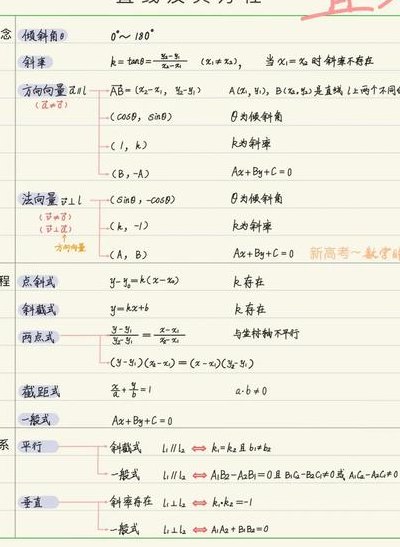 直线及其方程
念 倾斜角θ 0°~180°
斜率 k=tanθ=\frac{y₂-y₁}{x₂-x₁} (x₁≠x₂), 当x₁=x₂时斜率不存在
方向向量\vec{a}∥l \vec{AB}=(x₂-x₁, y₂-y₁) A(x₁,y₁), B(x₂,y₂)是直线l上两个不同
(\vec{a}≠\vec{0})
(cosθ, sinθ) θ为倾斜角
(1, k) k为斜率
(B, -A) Ax+By+C=0
法向量\vec{v}⊥l (sinθ, -cosθ) θ为倾斜角
(\vec{v}≠\vec{0})
(k, -1) k为斜率
(\vec{v}⊥\vec{a})
方向向量
(A, B) Ax+By+C=0 新高考~数学
程 点斜式 y-y₀=k(x-x₀) k存在
斜截式 y=kx+b k存在
两点式 \frac{y-y₁}{y₂-y₁}=\frac{x-x₁}{x₂-x₁} 与坐标轴不平行
(y-y₁)(x₂-x₁)=(x-x₁)(y₂-y₁)
截距式 \frac{x}{a}+\frac{y}{b}=1 a·b≠0
一般式 Ax+By+C=0
系 平行 斜截式 l₁∥l₂ ⇔ k₁=k₂且b₁≠b₂
一般式 l₁∥l₂ ⇔ A₁B₂-A₂B₁=0且B₁C₂-B₂C₁≠0或A₁C₂-A₂C₁≠0
垂直 斜率存在 l₁⊥l₂ ⇔ k₁·k₂=-1
一般式 l₁⊥l₂ ⇔ A₁A₂+B₁B₂=0